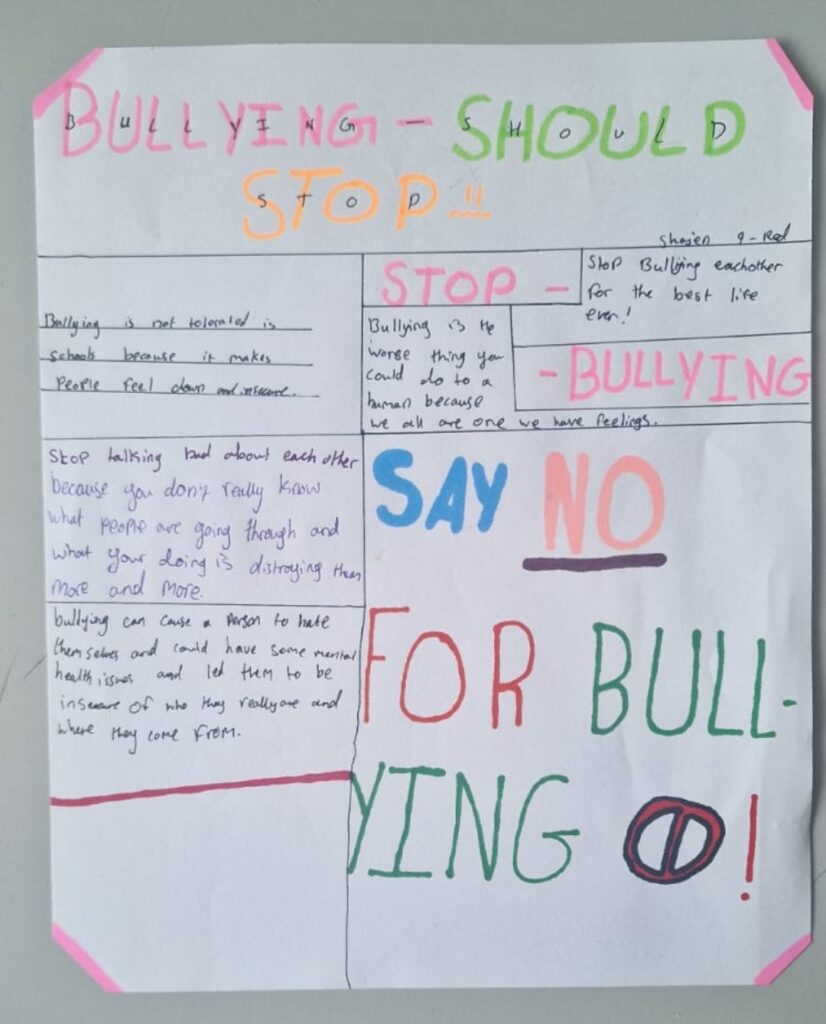 BULLYING - SHOULD
BULLYING - SHOULD
STOP!!
STOP
9-Red
Bullying is not tolerated is
schools because it makes
People feel down and insecure.
STOP -
Stop Bullying eachother
for the best life
ever!
Bullying is the
worse thing you
could do to a
human because
we all are one we have feelings.
- BULLYING
Stop talking bad about each other
because you don't really know
what people are going through and
what your doing is distroying them
more and more.
bullying can cause a person to hate
themselves and could have some mental
health issues and led them to be
insecure of who they really are and
where they come from.
SAY NO
FOR BULL-
YING !